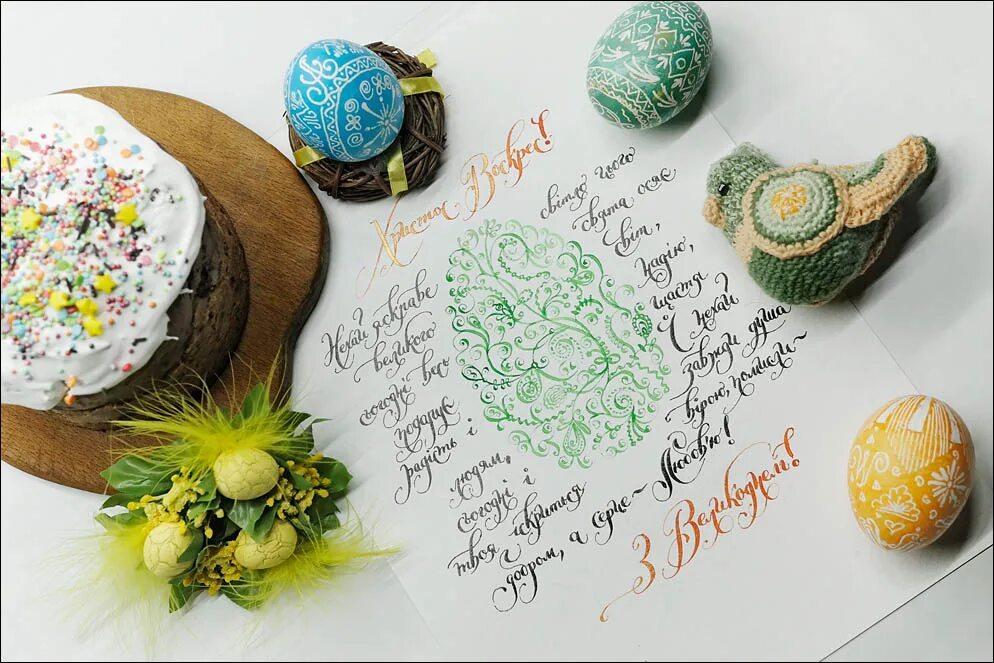 Христос Воскрес!
Нехай яскраве світло цього
великого свята осяє
сьогодні весь світ,
подарує надію,
радість і щастя
людям. І нехай
сьогодні і завжди душа
твоя іскриться вірою, помисли ~
добром, а серце ~ Любов'ю!
З Великоднем!